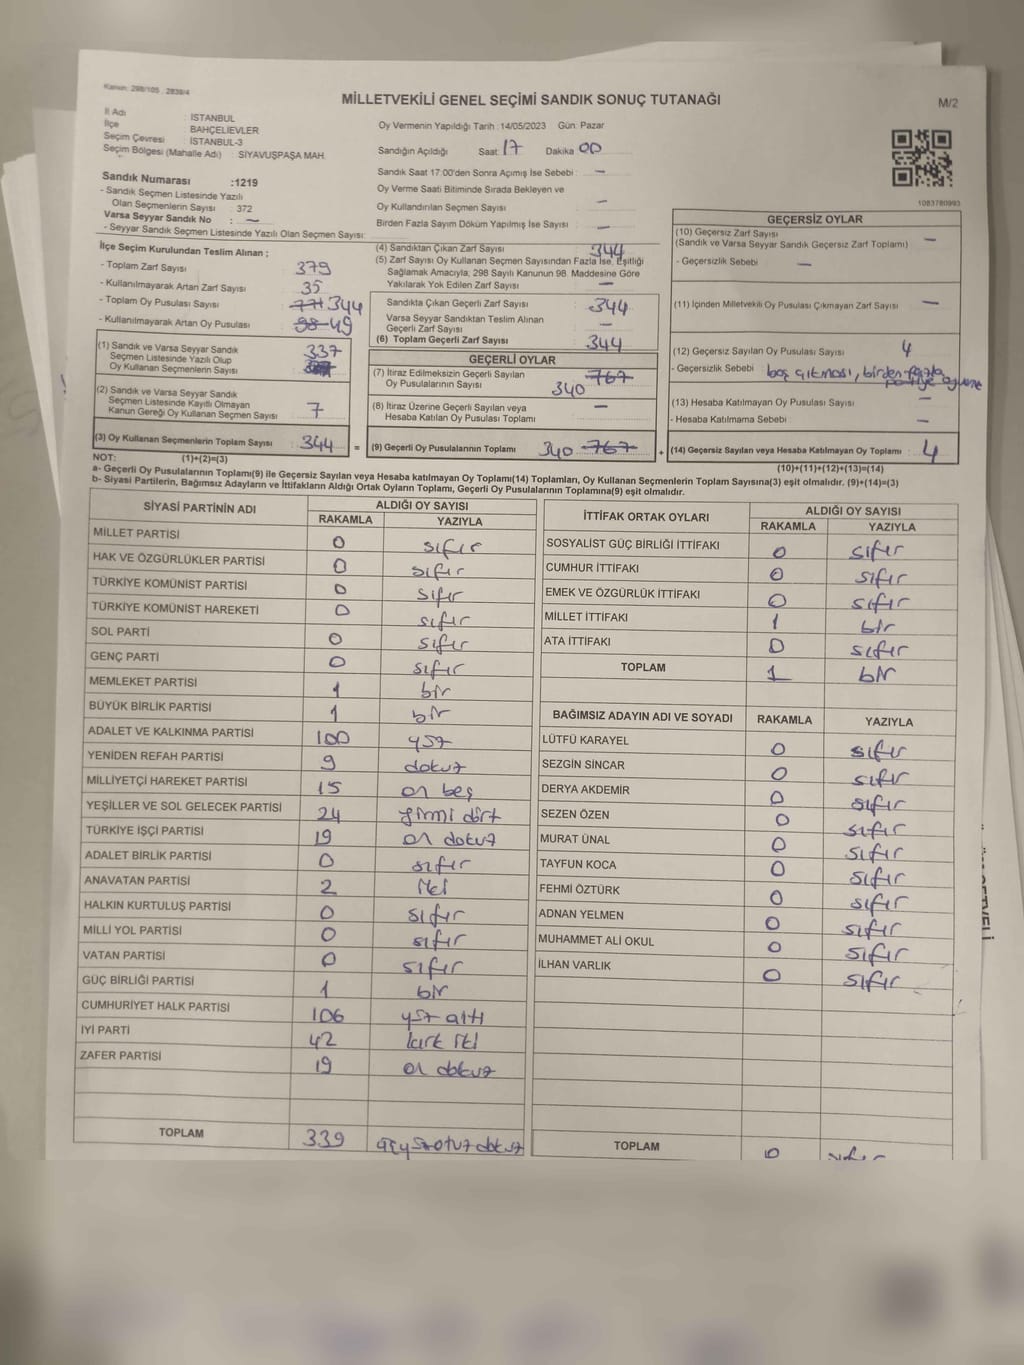 Kanun: 298/105 , 2839/4
MİLLETVEKİLİ GENEL SEÇİMİ SANDIK SONUÇ TUTANAĞI
M/2
İl Adı : İSTANBUL
İlçe : BAHÇELİEVLER
Seçim Çevresi : İSTANBUL-3
Seçim Bölgesi (Mahalle Adı) : SİYAVUŞPAŞA MAH.
Oy Vermenin Yapıldığı Tarih :14/05/2023 Gün: Pazar
Sandığın Açıldığı Saat: 17 Dakika 00
Sandık Numarası :1219
- Sandık Seçmen Listesinde Yazılı
Olan Seçmenlerin Sayısı : 372
Varsa Seyyar Sandık No : —
- Seyyar Sandık Seçmen Listesinde Yazılı Olan Seçmen Sayısı:
Sandık Saat 17:00'den Sonra Açımış İse Sebebi : —
Oy Verme Saati Bitiminde Sırada Bekleyen ve
Oy Kullandırılan Seçmen Sayısı : —
Birden Fazla Sayım Döküm Yapılmış İse Sayısı : —
1083780993
İlçe Seçim Kurulundan Teslim Alınan ;
- Toplam Zarf Sayısı : 379
- Kullanılmayarak Artan Zarf Sayısı : 35
- Toplam Oy Pusulası Sayısı : 771 344
- Kullanılmayarak Artan Oy Pusulası : 98 49
(1) Sandık ve Varsa Seyyar Sandık
Seçmen Listesinde Yazılı Olup
Oy Kullanan Seçmenlerin Sayısı : 337
(2) Sandık ve Varsa Seyyar Sandık
Seçmen Listesinde Kayıtlı Olmayan
Kanun Gereği Oy Kullanan Seçmen Sayısı : 7
(3) Oy Kullanan Seçmenlerin Toplam Sayısı : 344 =
(4) Sandıktan Çıkan Zarf Sayısı : 344
(5) Zarf Sayısı Oy Kullanan Seçmen Sayısından Fazla İse, Eşitliği
Sağlamak Amacıyla, 298 Sayılı Kanunun 98. Maddesine Göre
Yakılarak Yok Edilen Zarf Sayısı : —
Sandıkta Çıkan Geçerli Zarf Sayısı : 344
Varsa Seyyar Sandıktan Teslim Alınan
Geçerli Zarf Sayısı : —
(6) Toplam Geçerli Zarf Sayısı : 344
GEÇERLİ OYLAR
(7) İtiraz Edilmeksizin Geçerli Sayılan
Oy Pusulalarının Sayısı : 767 340
(8) İtiraz Üzerine Geçerli Sayılan veya
Hesaba Katılan Oy Pusulası Toplamı : —
(9) Geçerli Oy Pusulalarının Toplamı : 340 767 +
GEÇERSİZ OYLAR
(10) Geçersiz Zarf Sayısı
(Sandık ve Varsa Seyyar Sandık Geçersiz Zarf Toplamı) : —
- Geçersizlik Sebebi : —
(11) İçinden Milletvekili Oy Pusulası Çıkmayan Zarf Sayısı : —
(12) Geçersiz Sayılan Oy Pusulası Sayısı : 4
- Geçersizlik Sebebi : boş çıkması, birden fazla
partiye oy verme
(13) Hesaba Katılmayan Oy Pusulası Sayısı : —
- Hesaba Katılmama Sebebi : —
(14) Geçersiz Sayılan veya Hesaba Katılmayan Oy Toplamı : 4
NOT: (1)+(2)=(3)
(10)+(11)+(12)+(13)=(14)
a- Geçerli Oy Pusulalarının Toplamı(9) ile Geçersiz Sayılan veya Hesaba katılmayan Oy Toplamı(14) Toplamları, Oy Kullanan Seçmenlerin Toplam Sayısına(3) eşit olmalıdır. (9)+(14)=(3)
b- Siyasi Partilerin, Bağımsız Adayların ve İttifakların Aldığı Ortak Oyların Toplamı, Geçerli Oy Pusulalarının Toplamına(9) eşit olmalıdır.
SİYASİ PARTİNİN ADI ALDIĞI OY SAYISI
RAKAMLA YAZIYLA
MİLLET PARTİSİ 0 sıfır
HAK VE ÖZGÜRLÜKLER PARTİSİ 0 sıfır
TÜRKİYE KOMÜNİST PARTİSİ 0 sıfır
TÜRKİYE KOMÜNİST HAREKETİ 0 sıfır
SOL PARTİ 0 sıfır
GENÇ PARTİ 0 sıfır
MEMLEKET PARTİSİ 1 bir
BÜYÜK BİRLİK PARTİSİ 1 bir
ADALET VE KALKINMA PARTİSİ 100 yüz
YENİDEN REFAH PARTİSİ 9 dokuz
MİLLİYETÇİ HAREKET PARTİSİ 15 on beş
YEŞİLLER VE SOL GELECEK PARTİSİ 24 yirmi dört
TÜRKİYE İŞÇİ PARTİSİ 19 on dokuz
ADALET BİRLİK PARTİSİ 0 sıfır
ANAVATAN PARTİSİ 2 iki
HALKIN KURTULUŞ PARTİSİ 0 sıfır
MİLLİ YOL PARTİSİ 0 sıfır
VATAN PARTİSİ 0 sıfır
GÜÇ BİRLİĞİ PARTİSİ 1 bir
CUMHURİYET HALK PARTİSİ 106 yüz altı
İYİ PARTİ 42 kırk iki
ZAFER PARTİSİ 19 on dokuz
TOPLAM 339 üçyüzotuzdokuz
İTTİFAK ORTAK OYLARI ALDIĞI OY SAYISI
RAKAMLA YAZIYLA
SOSYALİST GÜÇ BİRLİĞİ İTTİFAKI 0 sıfır
CUMHUR İTTİFAKI 0 sıfır
EMEK VE ÖZGÜRLÜK İTTİFAKI 0 sıfır
MİLLET İTTİFAKI 1 bir
ATA İTTİFAKI 0 sıfır
TOPLAM 1 bir
BAĞIMSIZ ADAYIN ADI VE SOYADI RAKAMLA YAZIYLA
LÜTFÜ KARAYEL 0 sıfır
SEZGİN SİNCAR 0 sıfır
DERYA AKDEMİR 0 sıfır
SEZEN ÖZEN 0 sıfır
MURAT ÜNAL 0 sıfır
TAYFUN KOCA 0 sıfır
FEHMİ ÖZTÜRK 0 sıfır
ADNAN YELMEN 0 sıfır
MUHAMMET ALİ OKUL 0 sıfır
İLHAN VARLIK 0 sıfır
TOPLAM 0 sıfır